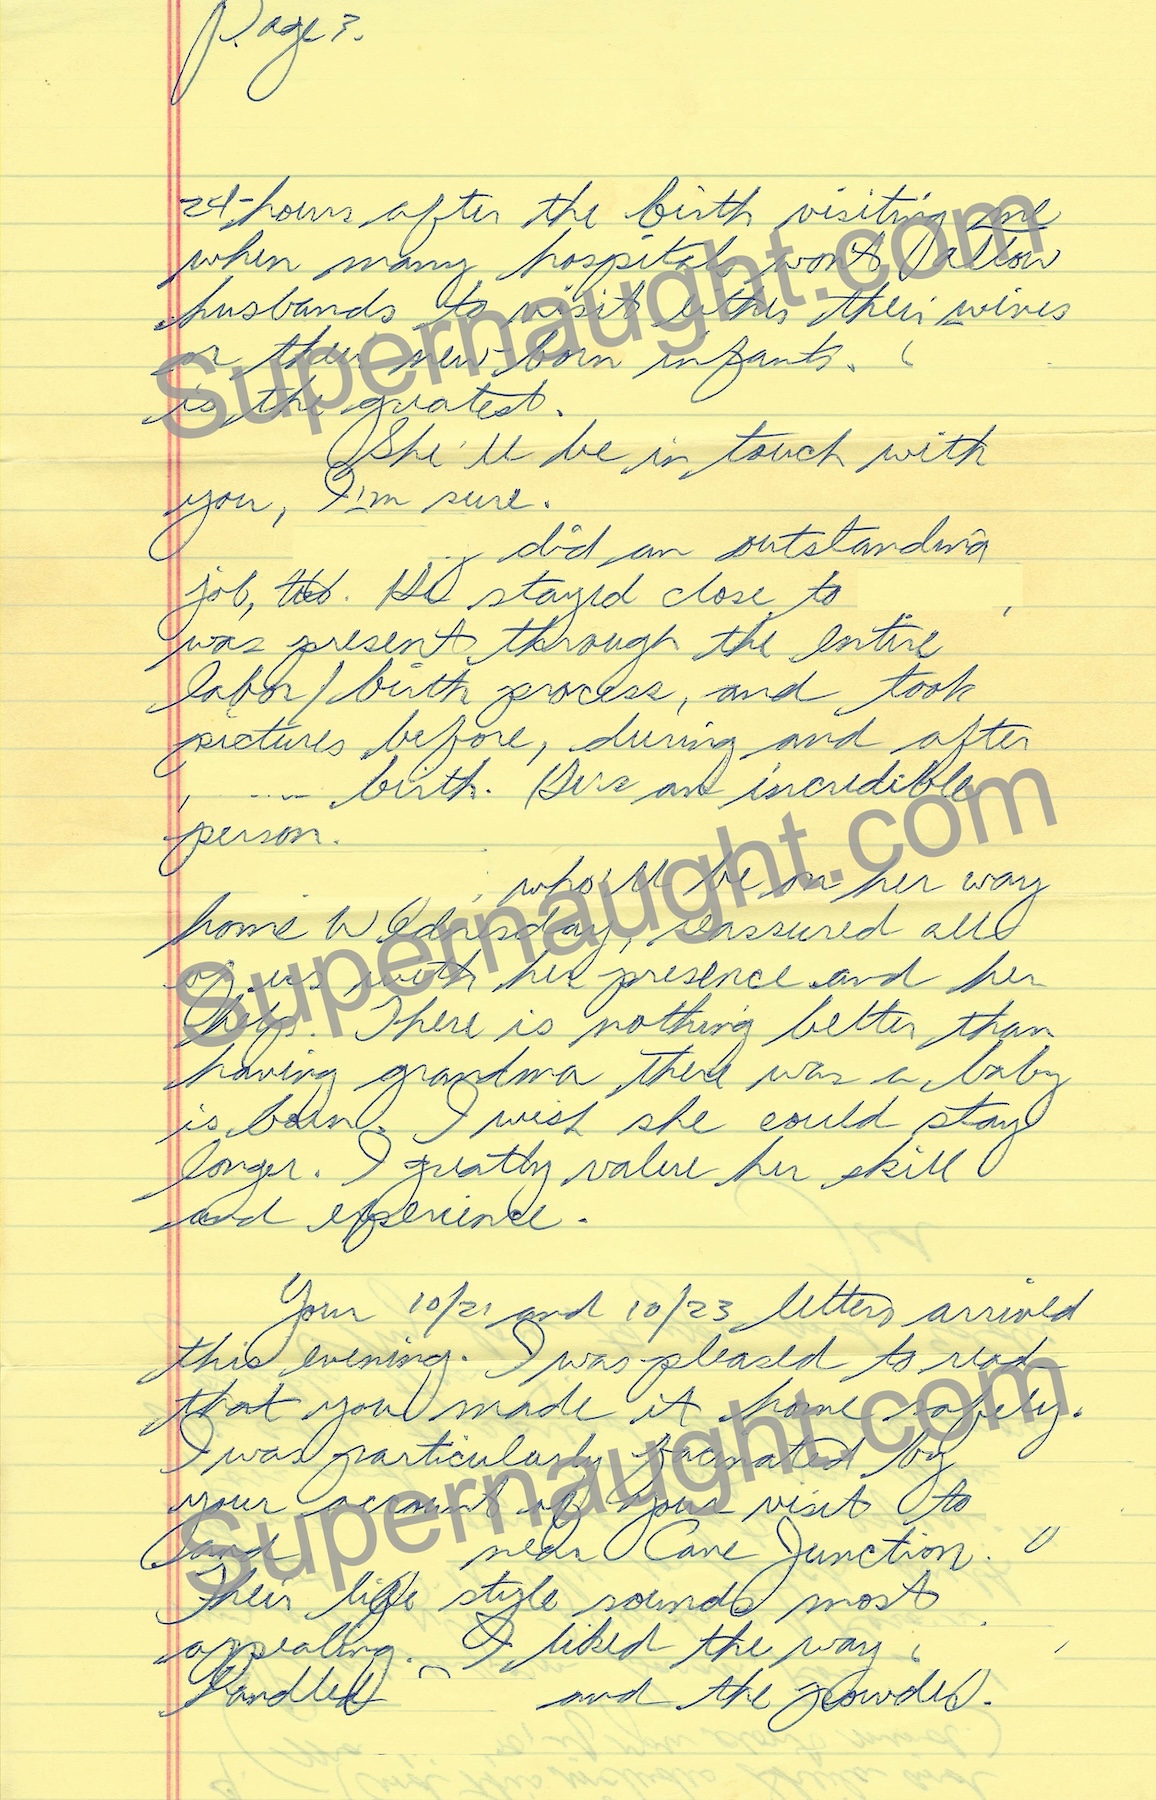 Page 3.
24-hours after the birth visiting me
when many hospitals won't allow
husbands to visit either their wives
or their new-born infants.
is the greatest.
She'll be in touch with
you, I'm sure.
did an outstanding
job, too. He stayed close to ,
was present through the entire
labor/birth process, and took
pictures before, during and after
birth. He's an incredible
person.
who'll be on her way
home Wednesday, reassured all
of us with her presence and her
help. There is nothing better than
having grandma there was a baby
is born. I wish she could stay
longer. I greatly value her skill
and experience.
Your 10/21 and 10/23 letters arrived
this evening. I was pleased to read
that you made it home safely.
I was particularly facinated by
your account of your visit to
and near Cave Junction.
Their life style sounds most
appealing. I liked the way
handled and the powder.
Supernaught.com
Supernaught.com
Supernaught.com